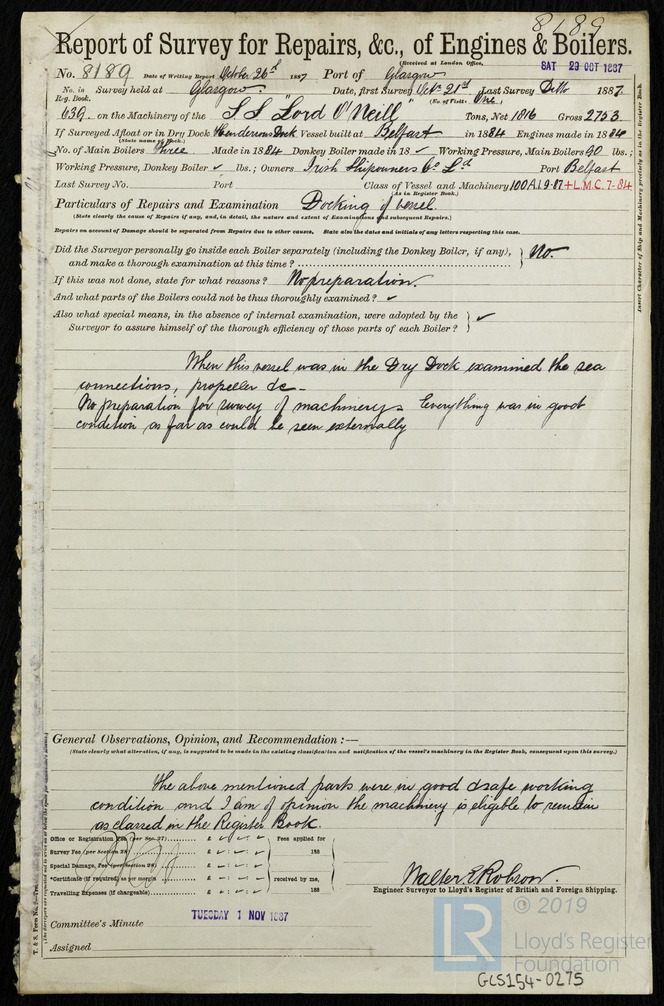 8189
Report of Survey for Repairs, &c., of Engines & Boilers.
(Received at London Office,
SAT 29 OCT 1887
No. 8189 Date of Writing Report October 26th 1887 Port of Glasgow
No. in Reg. Book. Survey held at Glasgow Date, first Survey Octr 21st Last Survey Ditto 1887
(No. of Visits One)
639. on the Machinery of the S.S. "Lord O'Neill" Tons, Net 1816 Gross 2753
If Surveyed Afloat or in Dry Dock Hendersons Dock Vessel built at Belfast in 1884 Engines made in 1884
(State name of Dock.)
No. of Main Boilers Three Made in 1884 Donkey Boiler made in 18 ✓ Working Pressure, Main Boilers 90 lbs.;
Working Pressure, Donkey Boiler ✓ lbs.; Owners Irish Shipowners Co Ld Port Belfast
Last Survey No. Port Class of Vessel and Machinery 100A1 9.87 +L.M.C. 7-84
(As in Register Book.)
Particulars of Repairs and Examination Docking of vessel
(State clearly the cause of Repairs if any, and, in detail, the nature and extent of Examinations and subsequent Repairs.)
Repairs on account of Damage should be separated from Repairs due to other causes. State also the dates and initials of any letters respecting this case.
Did the Surveyor personally go inside each Boiler separately (including the Donkey Boiler, if any), and make a thorough examination at this time? } No.
If this was not done, state for what reasons? No preparation.
And what parts of the Boilers could not be thus thoroughly examined? ✓
Also what special means, in the absence of internal examination, were adopted by the Surveyor to assure himself of the thorough efficiency of those parts of each Boiler? } ✓
When this vessel was in the Dry Dock examined the sea
connections, propeller &c-
No preparation for survey of machinery. Everything was in good
condition as far as could be seen externally
General Observations, Opinion, and Recommendation :—
(State clearly what alteration, if any, is suggested to be made in the existing classification and notification of the vessel's machinery in the Register Book, consequent upon this survey.)
The above mentioned parts were in good & safe working
condition and I am of opinion the machinery is eligible to remain
as classed in the Register Book.
Office or Registration Fee (per Sec. 27) £ Fees applied for
Survey Fee (per Section 28) £ 188
Special Damage, Fee (per Section 28) £
*Certificate (if required) as per margin £ received by me,
Travelling Expenses (if chargeable) £ 188
Walter E Robson
Engineer Surveyor to Lloyd's Register of British and Foreign Shipping.
Committee's Minute TUESDAY 1 NOV 1887
Assigned
Insert Character of Ship and Machinery precisely as in the Register Book.
LR
© 2019
Lloyd's Register
Foundation
GLS154-0275